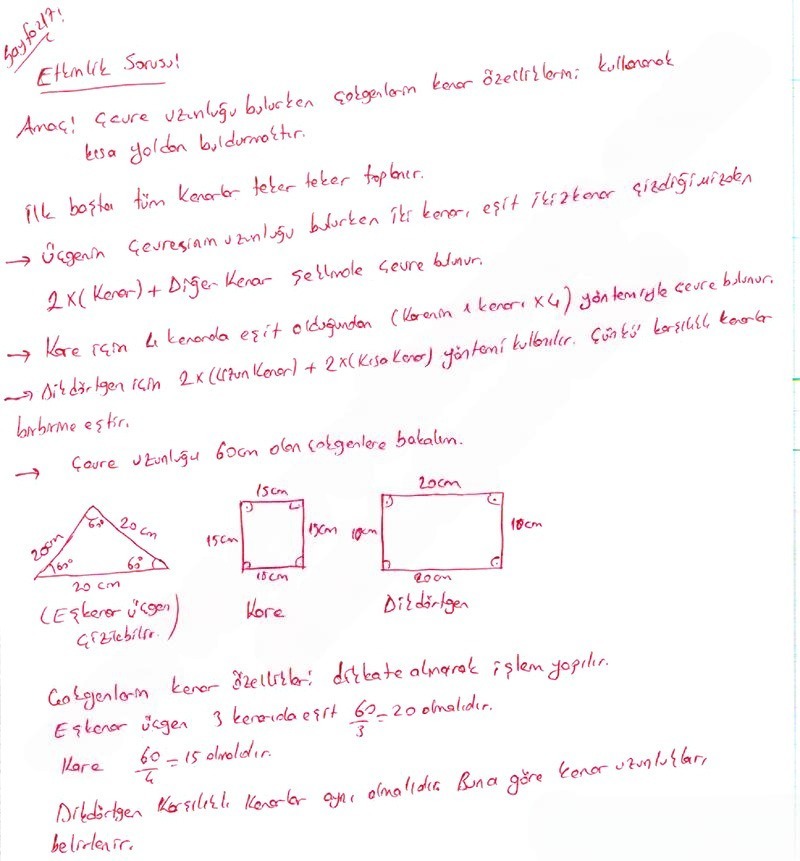 Sayfa 217!
Etkinlik Sorusu!
Amaç! Çevre uzunluğu bulurken çokgenlerin kenar özelliklerini kullanarak
kısa yoldan buldurmaktır.
İlk başta tüm kenarlar teker teker toplanır.
→ Üçgenin çevresinin uzunluğu bulurken iki kenarı eşit ikizkenar çizdiğimizden
2x(Kenar) + Diğer Kenar şeklinde çevre bulunur.
→ Kare için 4 kenarıda eşit olduğundan (Karenin 1 kenarı x4) yöntemiyle çevre bulunur.
→ Dikdörtgen için 2x(Uzun Kenar) + 2x(Kısa Kenar) yöntemi kullanılır. Çünkü karşılıklı kenarlar
birbirine eştir.
→ Çevre uzunluğu 60cm olan çokgenlere bakalım.
20cm 20cm 60° 60° 60° 20 cm
(Eşkenar üçgen
çizilebilir.)
15cm 15cm 15cm 15cm
Kare
20cm 10cm 10cm 20cm
Dikdörtgen
Çokgenlerin kenar özellikleri dikkate alınarak işlem yapılır.
Eşkenar üçgen 3 kenarıda eşit 60/3 = 20 olmalıdır.
Kare 60/4 = 15 olmalıdır.
Dikdörtgen Karşılıklı Kenarlar aynı olmalıdır. Buna göre kenar uzunlukları
belirlenir.